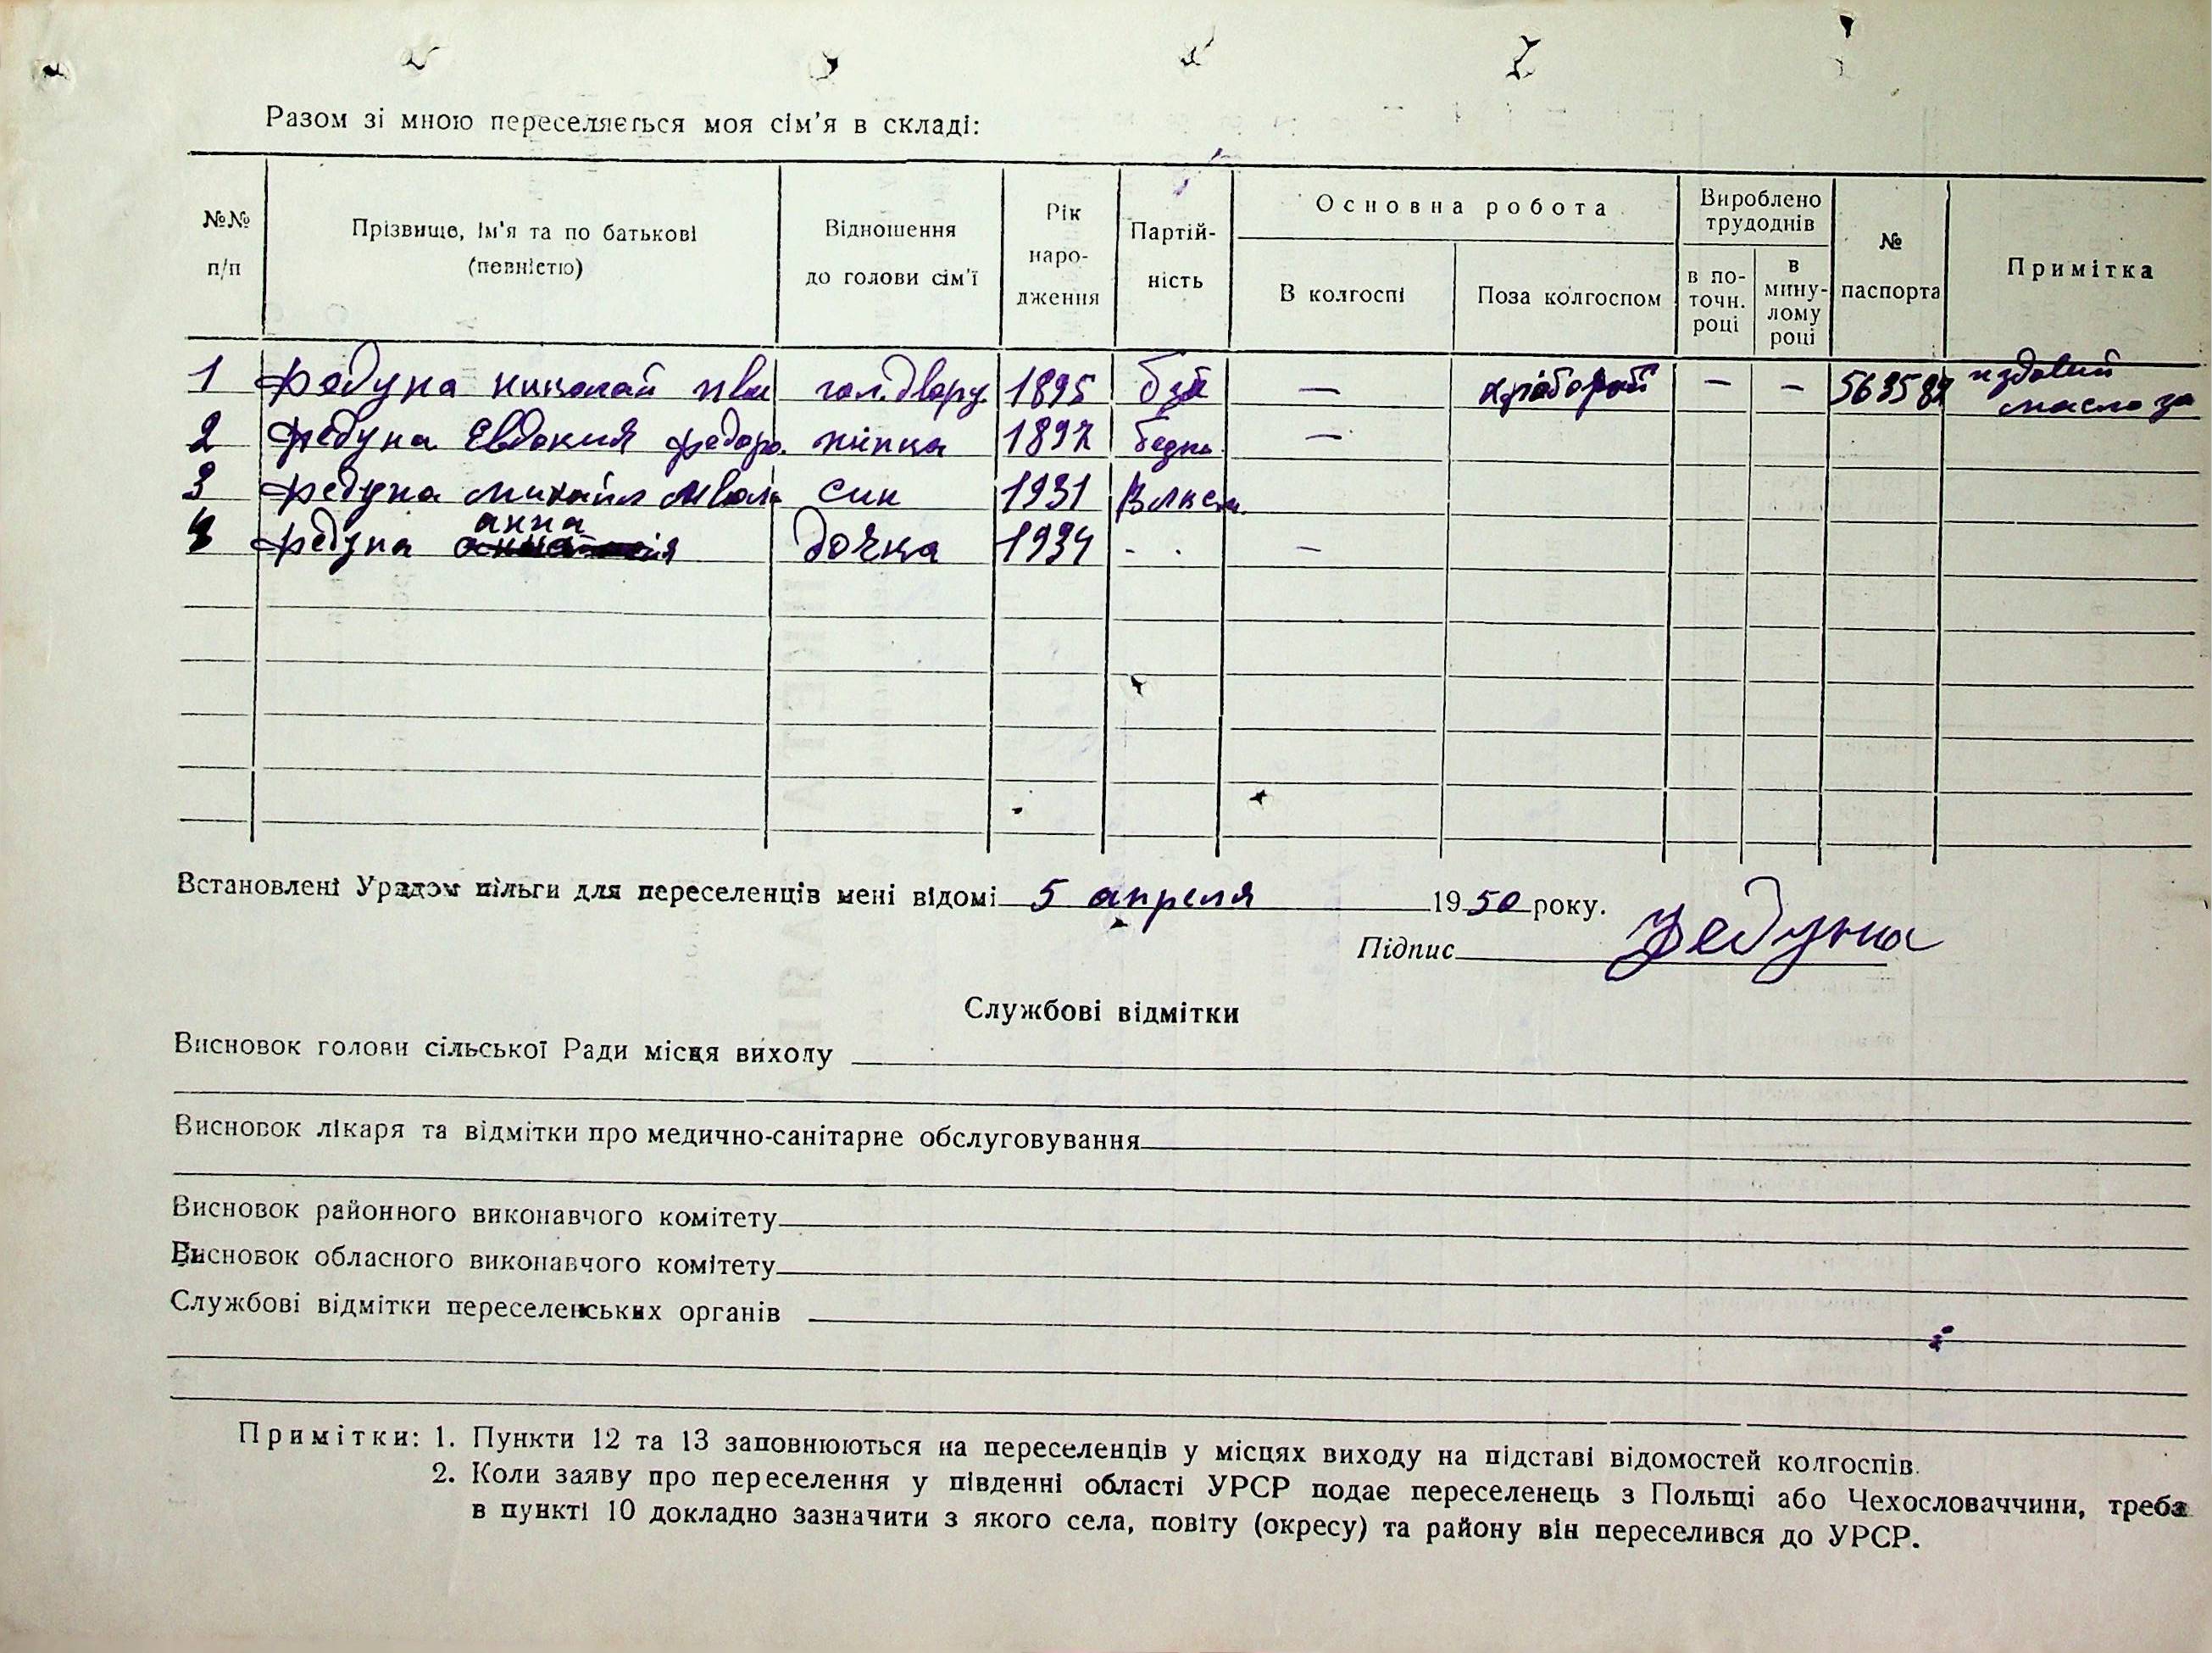 Разом зі мною переселяється моя сім'я в складі:
№№ п/п
Прізвище, ім'я та по батькові (повністю)
Відношення до голови сім'ї
Рік народження
Партійність
Основна робота
В колгоспі
Поза колгоспом
Вироблено трудоднів
в поточн. році
в минулому році
№ паспорта
Примітка
1 Федуна Николай гол. двору 1895 б/п — — —
2 Федуна Евдокия Федоро. жінка 1897 —
3 Федуна Михайл син 1931
4 Федуна анна дочка 1934 - . —
Встановлені Урядом пільги для переселенців мені відомі 5 апреля 1950 року.
Підпис Федуна
Службові відмітки
Висновок голови сільської Ради місця виходу
Висновок лікаря та відмітки про медично-санітарне обслуговування
Висновок районного виконавчого комітету
Висновок обласного виконавчого комітету
Службові відмітки переселенських органів
Примітки: 1. Пункти 12 та 13 заповнюються на переселенців у місцях виходу на підставі відомостей колгоспів.
2. Коли заяву про переселення у південні області УРСР подає переселенець з Польщі або Чехословаччини, треба
в пункті 10 докладно зазначити з якого села, повіту (окресу) та району він переселився до УРСР.